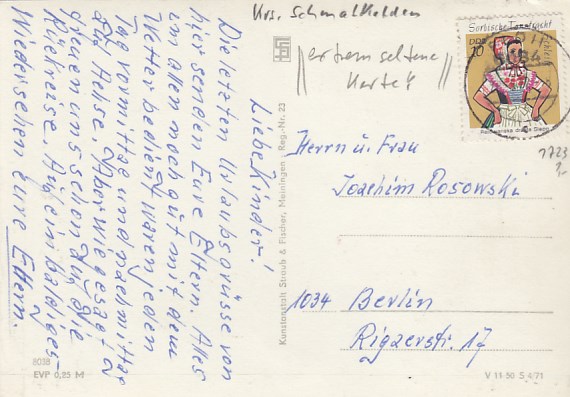 Krs. Schmalkalden
extrem seltene
Karte!
Sorbische Tanztracht
DDR
10
1723
Liebe Kinder!
Die letzten Urlaubsgrüsse von
hier senden Eure Eltern. Alles
um allen noch gut mit dem
Wetter bedient waren jeden
Tag vormittag und nachmittag
auf Achse. Aber wie gesagt
freuen uns schon auf die
Rückreise. Auf ein baldiges
Wiedersehen eure Eltern.
Kunstanstalt Straub & Fischer, Meiningen · Reg.-Nr. 23
Herrn u. Frau
Joachim Rosowski
1034 Berlin
Rigaerstr. 17
8038
EVP 0,25 M
V 11 50 S 4/71